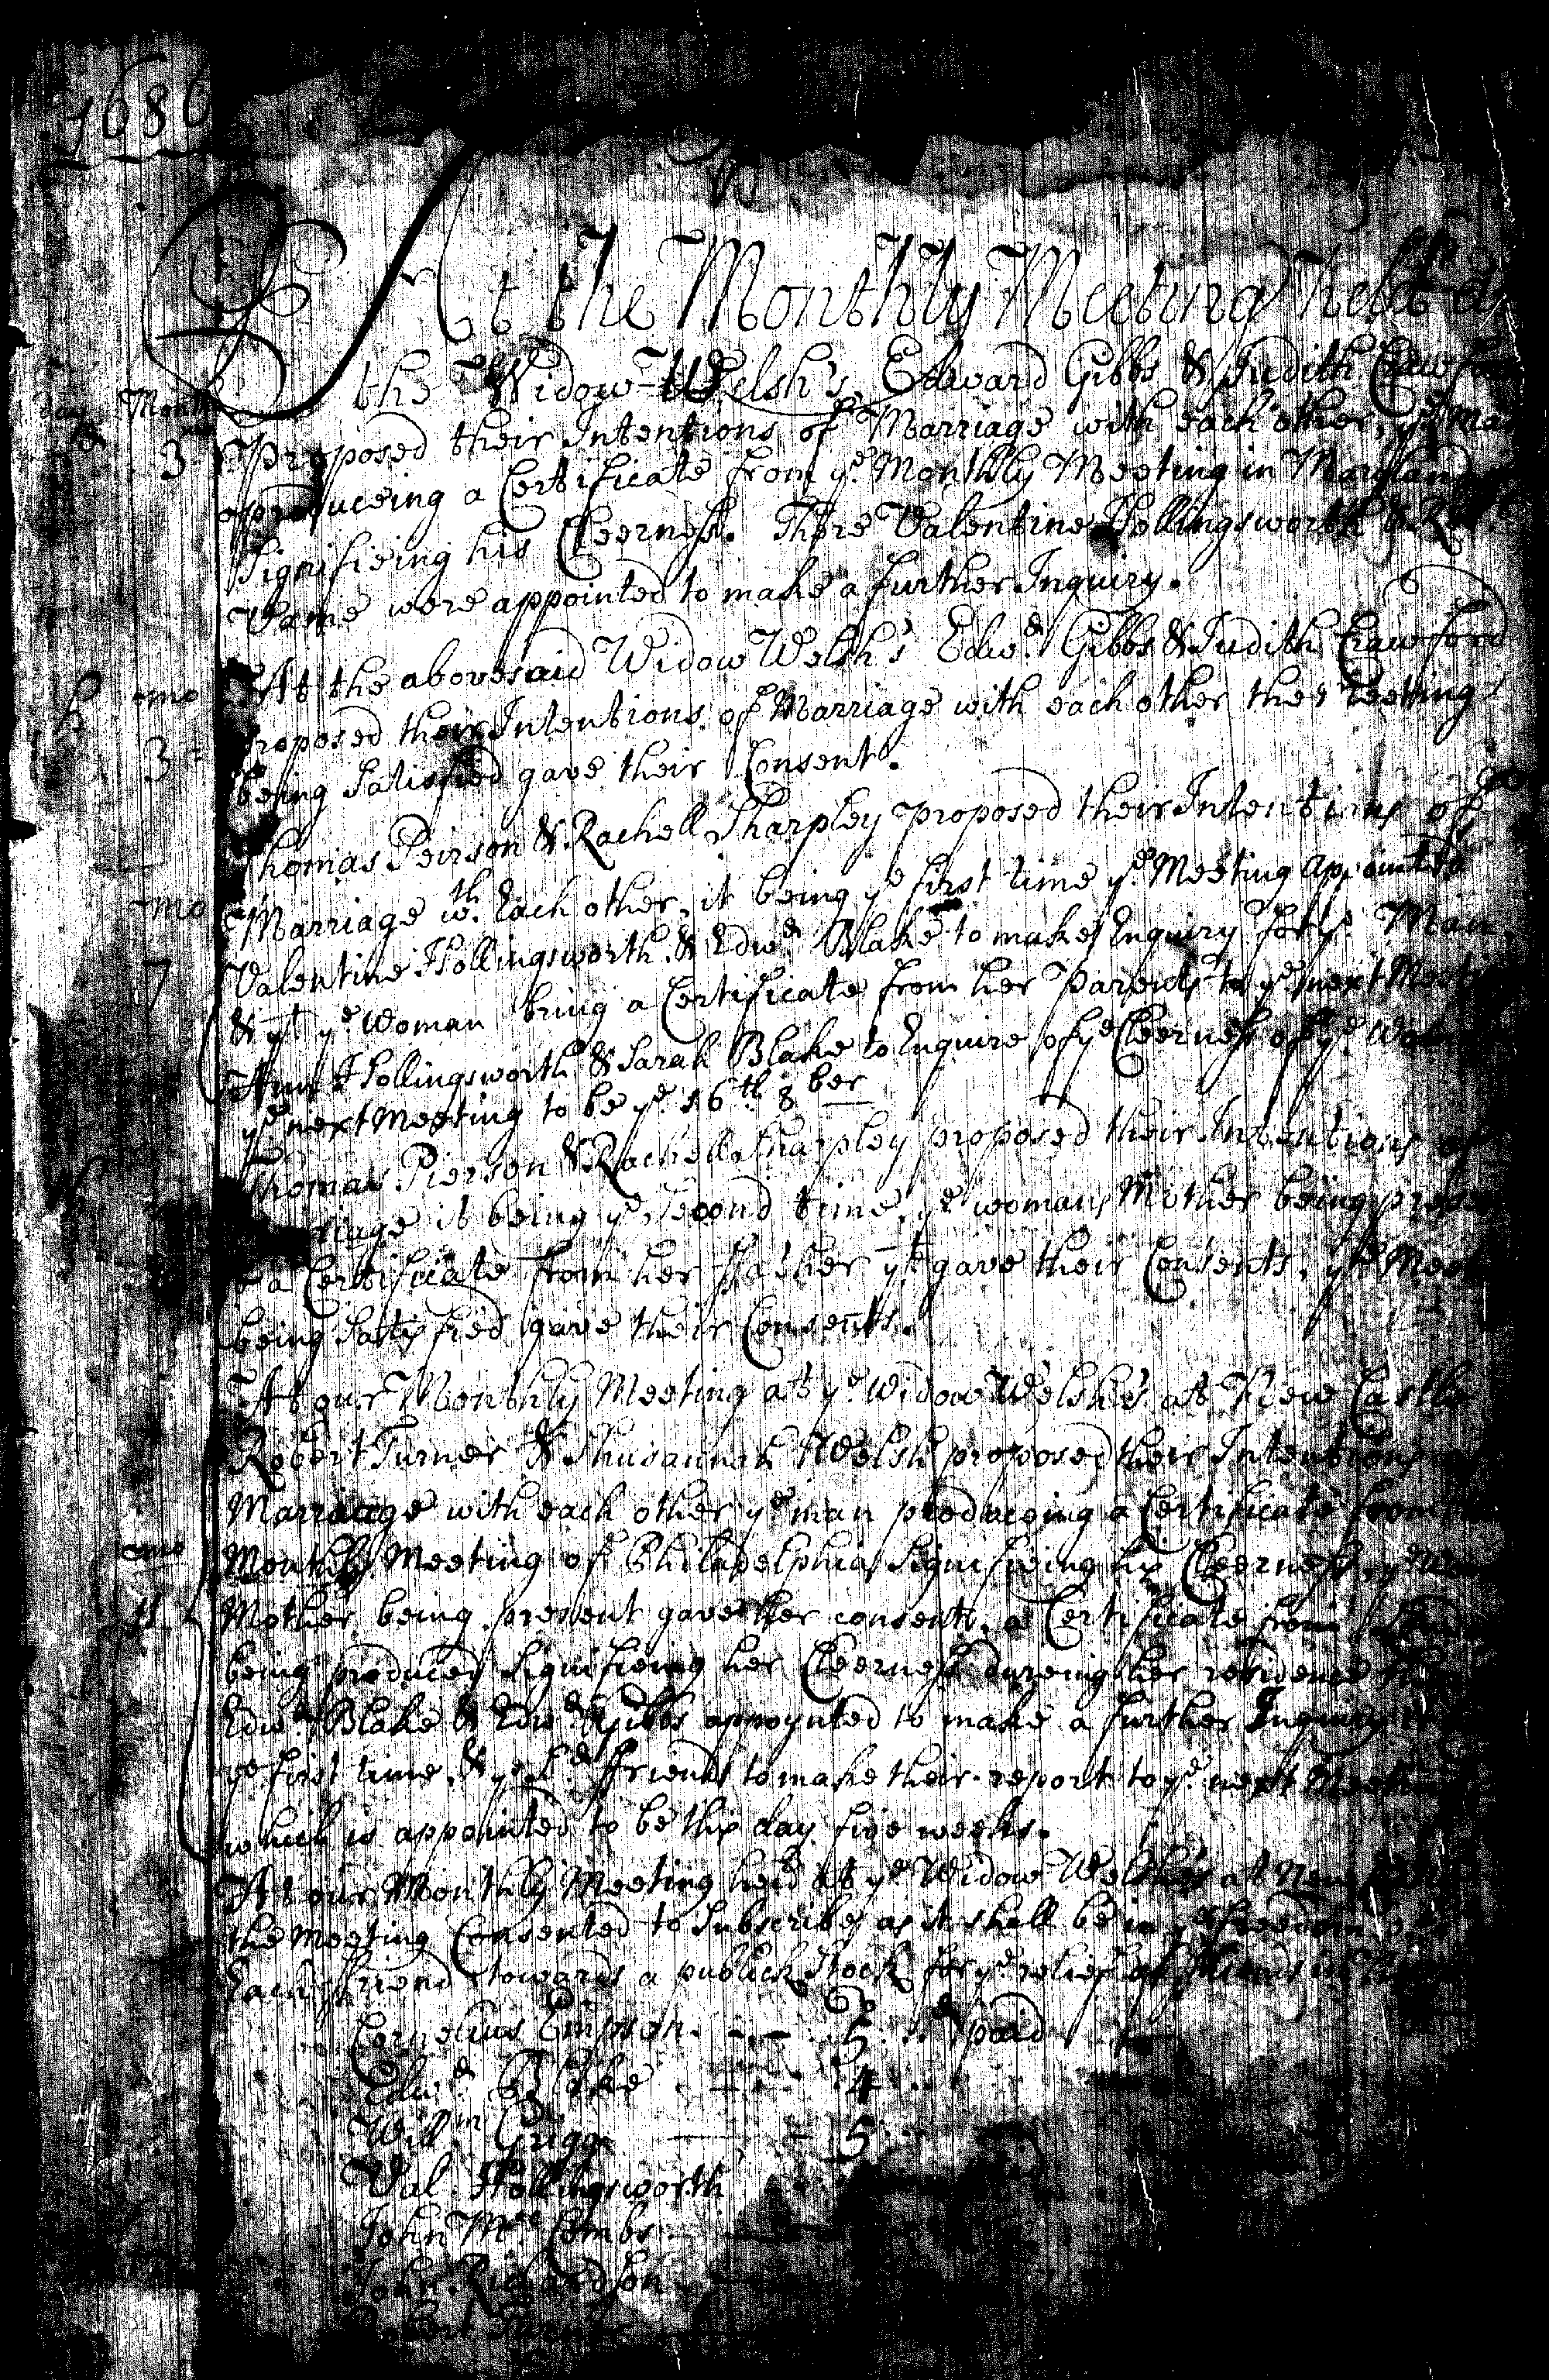 1686
At the Monthly Meeting held at
the Widow Welsh's Edward Gibbs & Judith Crawford
day Month
3 Proposed their Intentions of Marriage with each other, ye Man
produceing a Certificate from ye Monthly Meeting in Maryland
Signifieing his Cleerness. There Valentine Hollingsworth &
were appointed to make a further Inquiry.
mo At the abovesaid Widow Welsh's Edwd Gibbs & Judith Crawford
3 proposed their Intentions of Marriage with each other the Meeting
being Satisfied gave their Consent.
Thomas Peirson & Rachell Sharpley proposed their Intentions of
mo Marriage wth Each other, it being ye first time ye Meeting appointed
Valentine Hollingsworth & Edwd Blake to make Enquiry for ye Man
7 & yt ye Woman bring a Certificate from her Parents to ye next Meeting
Ann Hollingsworth & Sarah Blake to Enquire of ye Cleerness of ye
ye next Meeting to be ye 16th 8ber
Thomas Pierson & Rachell Sharpley proposed their Intentions of
Marriage it being ye Second time, ye womans Mother being present
a Certificate from her Father yt gave their Consents, ye Meeting
being Satisfied gave their Consents.
At our Monthly Meeting at ye Widow Welsh's at New Castle
Robert Turner & Shusannah Welsh proposed their Intentions
Marriage with each other ye man produceing a Certificate from
mo Monthly Meeting of Philadelphia Signifieing his Cleerness, ye
11 Mother being present gave her consent, a Certificate from
being produced Signifieing her Cleerness dureing her residence
Edwd Blake & Edwd Gibbs appoynted to make a further Inquiry
ye first time & ye sd ffriends to make their report to ye next Meeting
which is appointed to be this day five weeks.
At our Monthly Meeting held at ye Widow Welsh's at New
the Meeting Consented to Subscribe as it shall be in ye freedom
Each ffriend towards a publick Stock for ye relief of
Cornelius Empson 5 paid
Edwd Blake 4
Willm Grigg 5
Val. Hollingsworth
John McCombs
John Richardson
Robert Turner